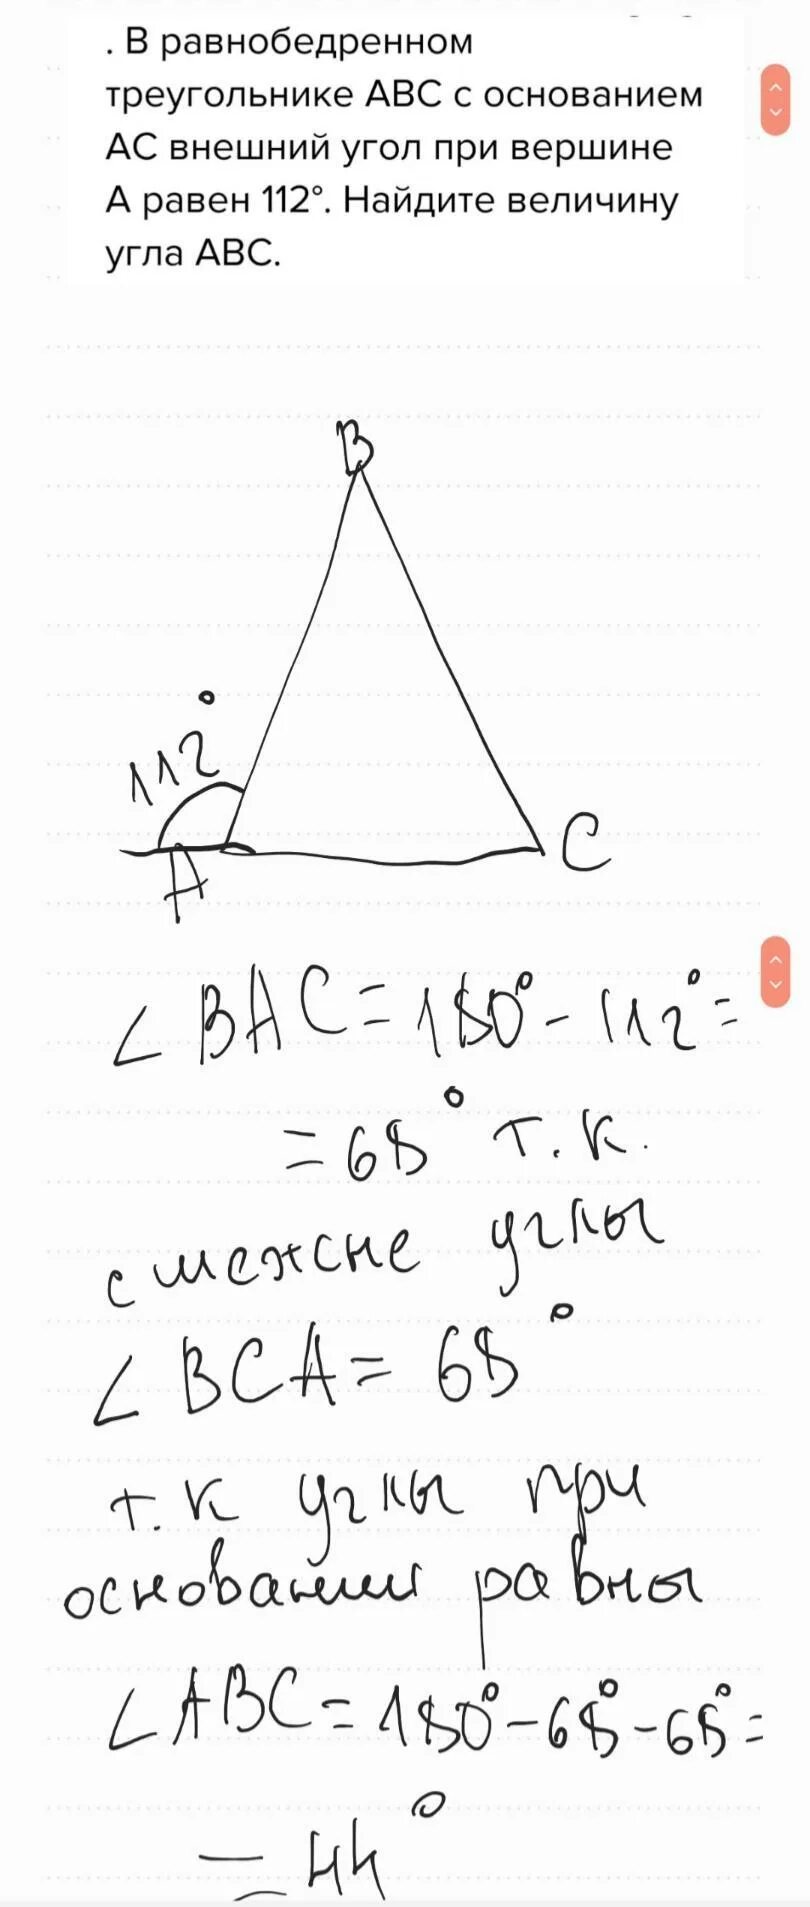 . В равнобедренном
треугольнике ABC с основанием
AC внешний угол при вершине
A равен 112°. Найдите величину
угла ABC.
B
112°
A
C
∠BAC=180°-112°=
=68° т.к.
смежсне углы
∠BCA=68°
т.к углы при
основании равны
∠ABC=180°-68°-68°=
=44°